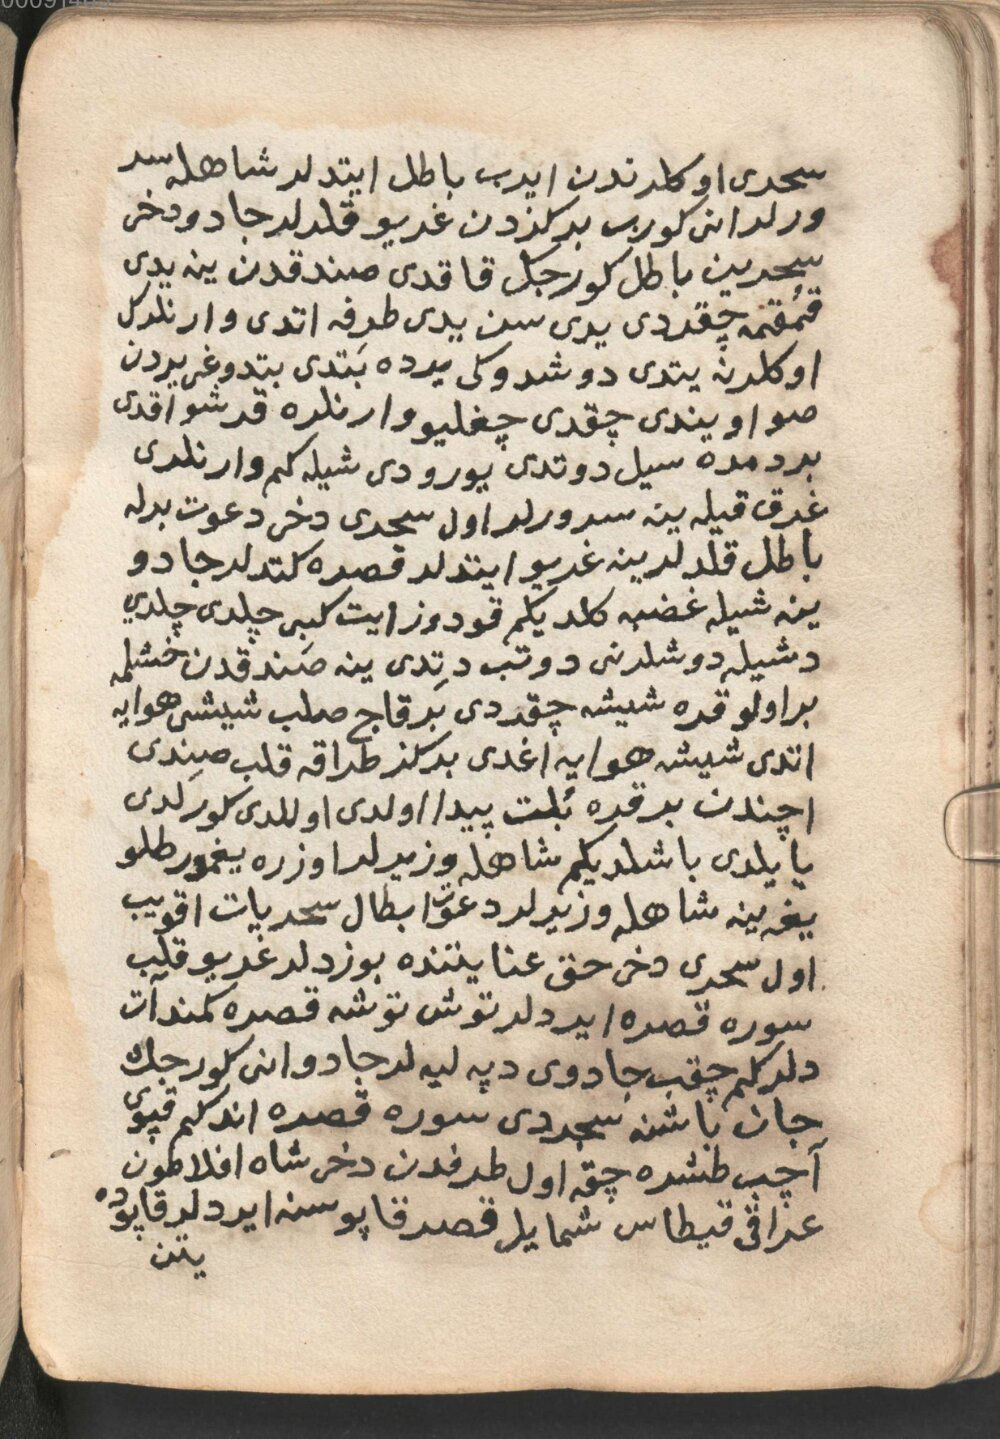 سحری اوکلرندن ایرب باطل ایتدلر شاهله سر
ورلر انی کورب بر کزدن غریو قلدلر جادو دخی
سحرین باطل کورجک قاقدی صندقدن ینه یدی
قمقمه چقردی یری سن یدی طرفه اتدی وارنلرک
اوکلرنه یتدی دوشدوکی یرده بتدی بتدوغی یردن
صو اویندی چقدی چغلیو وارنلره قرشو اقدی
بردمده سیل دوتدی یورودی شیله کم وارنلری
غرق قیله ینه سرورلر اول سحری دخی دعوت برله
باطل قلدلر ینه غریو ایتدلر قصره کتدلر جادو
ینه شیله غضبه کلدیکم قودوز ایت کبی چلدی چلدی
دشیله دوشلرنی دوتب دتدی ینه صندقدن خشمله
بر اولو قره شیشه چقردی بر قاچ صلب شیشی هوایه
اتدی شیشه هوایه اغدی بر کز طراقه قلب صندی
اچندن بر قره بلت پیدا اولدی اوللدی کورلدی
یایلدی باشلدیکم شاهله وزیرلر اوزره یغمور طلو
یغه ینه شاهله وزیرلر دعوت ابطال سحریات اقویب
اول سحری دخی حق عنایتنده بوزدلر غریو قلب
سوره قصره ایردلر توش توشه قصره کمند آت
دلر کم چقب جادوی دپه لیه لر جادو انی کورجک
جان باشنه سجردی سوره قصره اندکم قپوی
آچب طشره چقه اول طرفدن دخی شاه افلاطون
عراقی قیطاس شمایل قصر قاپوسنه ایردلر قاپوده
یتن